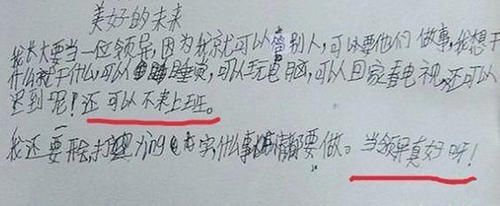 美好的未来
我长大要当一位领导,因为我就可以管别人,可以要他们做事,我想干
什么就干什么,可以睡觉,可以玩电脑,可以回家看电视,还可以
迟到呢!还可以不来上班。
我还要开会,其实什么事情都要做。当领导真好呀!